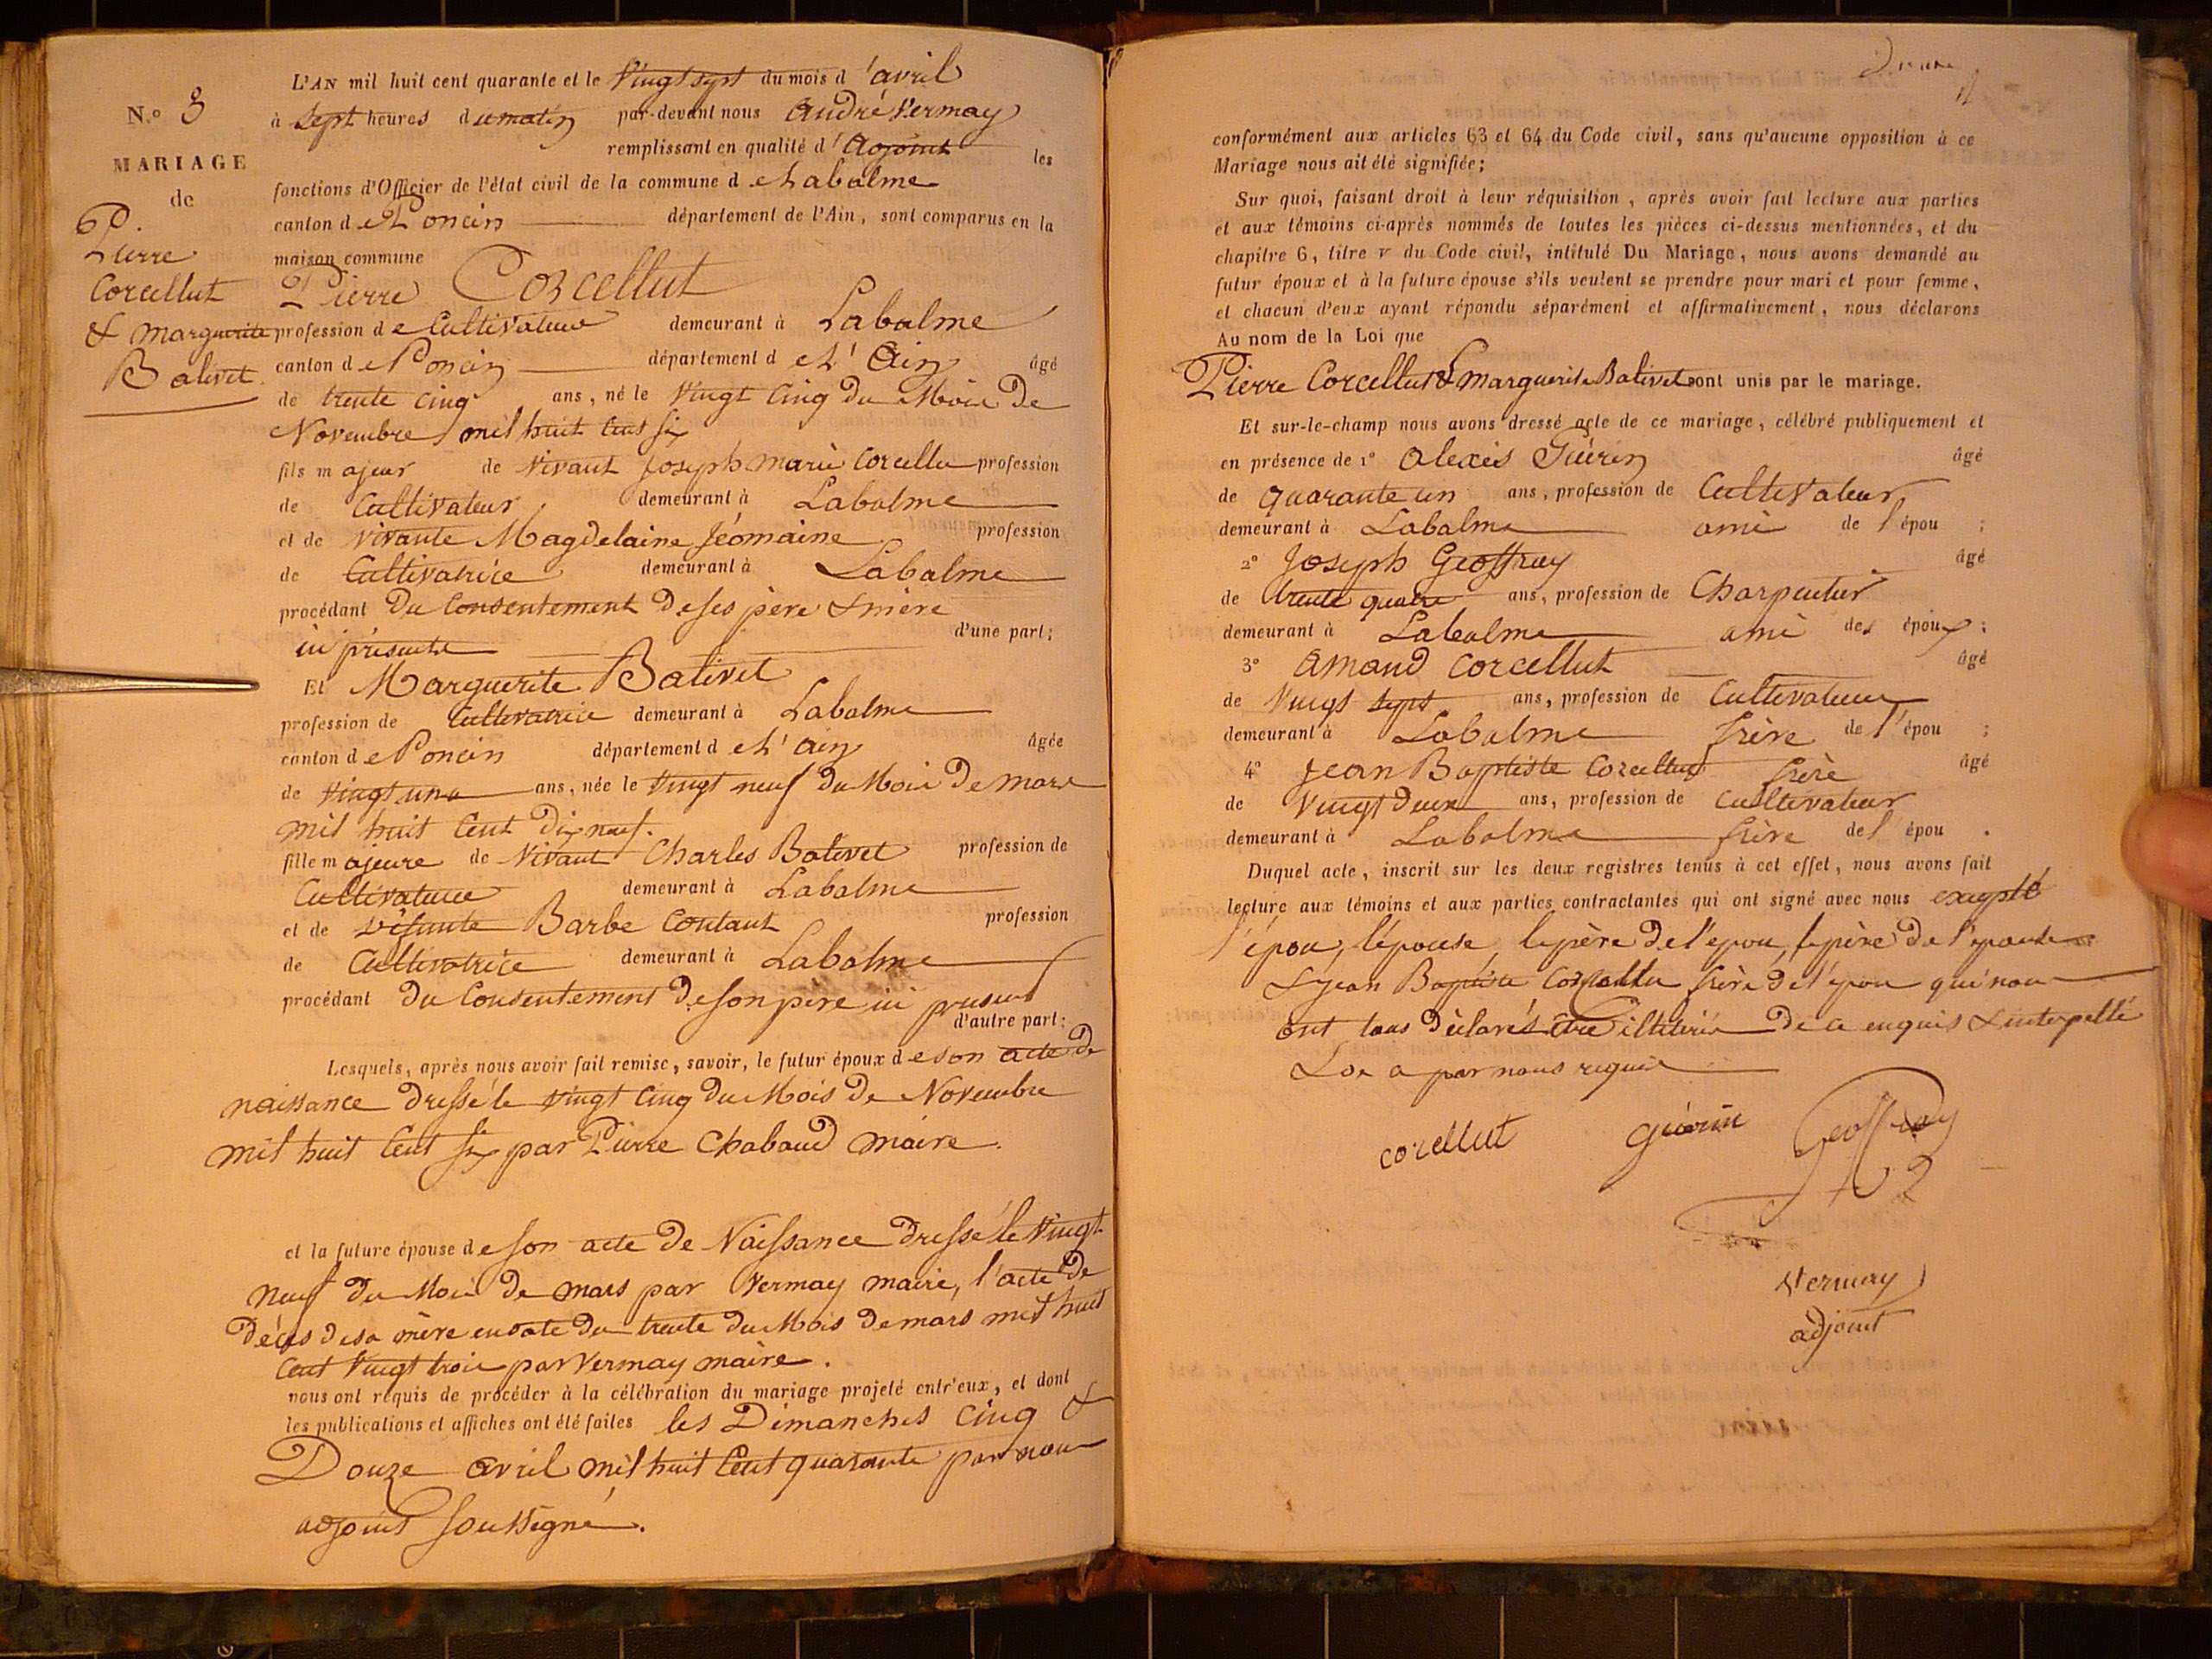 L'AN mil huit cent quarante et le Vingt sept du mois d'avril
N.º 3
à Sept heures du matin par-devant nous André Vermay
remplissant en qualité d'Adjoint les
MARIAGE
fonctions d'Officier de l'état civil de la commune de Labalme
de
canton de Poncin département de l'Ain, sont comparus en la
maison commune
Pierre
Corcellut
& Marguerite
Balivet
Pierre Corcellut
profession de Cultivateur demeurant à Labalme
canton de Poncin département de l'Ain âgé
de trente cinq ans, né le Vingt Cinq du Mois De
Novembre mil huit Cent six
fils majeur de Vivant Joseph marie Corcellu profession
de Cultivateur demeurant à Labalme
et de vivante Magdelaine Jéomaine profession
de Cultivatrice demeurant à Labalme
procédant Du Consentement De ses père & mère
ici présents d'une part;
Et Marguerite Balivet
profession de Cultivatrice demeurant à Labalme
canton de Poncin département de l'Ain âgée
de Vingt une ans, née le Vingt neuf du Mois De Mars
mil huit Cent Dix neuf.
fille majeure de Vivant Charles Balivet profession de
Cultivateur demeurant à Labalme
et de défunte Barbe Contant profession
de Cultivatrice demeurant à Labalme
procédant du Consentement De son père ici présent
d'autre part;
Lesquels, après nous avoir fait remise, savoir, le futur époux de son acte De
naissance Dressé le Vingt Cinq Du Mois De Novembre
mil huit Cent Six par Pierre Chabaud maire.
et la future épouse de son acte De Naissance Dressé le Vingt
Neuf Du Mois De mars par Vermay maire, l'acte De
Décès de sa mère en date Du trente Du Mois De mars mil huit
Cent Vingt trois par Vermay maire.
nous ont requis de procéder à la célébration du mariage projeté entr'eux, et dont
les publications et affiches ont été faites les Dimanches Cinq &
Douze avril mil huit Cent quarante par nous
adjoint Soussigné.
conformément aux articles 63 et 64 du Code civil, sans qu'aucune opposition à ce
Mariage nous ait été signifiée;
Sur quoi, faisant droit à leur réquisition, après avoir fait lecture aux parties
et aux témoins ci-après nommés de toutes les pièces ci-dessus mentionnées, et du
chapitre 6, titre v du Code civil, intitulé Du Mariage, nous avons demandé au
futur époux et à la future épouse s'ils veulent se prendre pour mari et pour femme,
et chacun d'eux ayant répondu séparément et affirmativement, nous déclarons
Au nom de la Loi que
Pierre Corcellut & Marguerite Balivet sont unis par le mariage.
Et sur-le-champ nous avons dressé acte de ce mariage, célébré publiquement et
en présence de 1º Alexis Guérin âgé
de quarante un ans, profession de Cultivateur
demeurant à Labalme ami de l'épou ;
2º Joseph Geoffray âgé
de trente quatre ans, profession de Charpentier
demeurant à Labalme ami des époux ;
3º Amand Corcellut âgé
de Vingt sept ans, profession de Cultivateur
demeurant à Labalme frère de l'épou ;
4º Jean Baptiste Corcellut frère âgé
de Vingt Deux ans, profession de Cultivateur
demeurant à Labalme frère de l'épou .
Duquel acte, inscrit sur les deux registres tenus à cet effet, nous avons fait
lecture aux témoins et aux parties contractantes qui ont signé avec nous excepté
l'épou, l'épouse, le père De l'épou, le père De l'épouse
& Jean Baptiste Corcellu frère De l'épou qui nous
ont tous déclarés être illitérés De ce enquis & interpellé
par nous requis
corcellut Guérin Geoffray
Vermay
adjoint